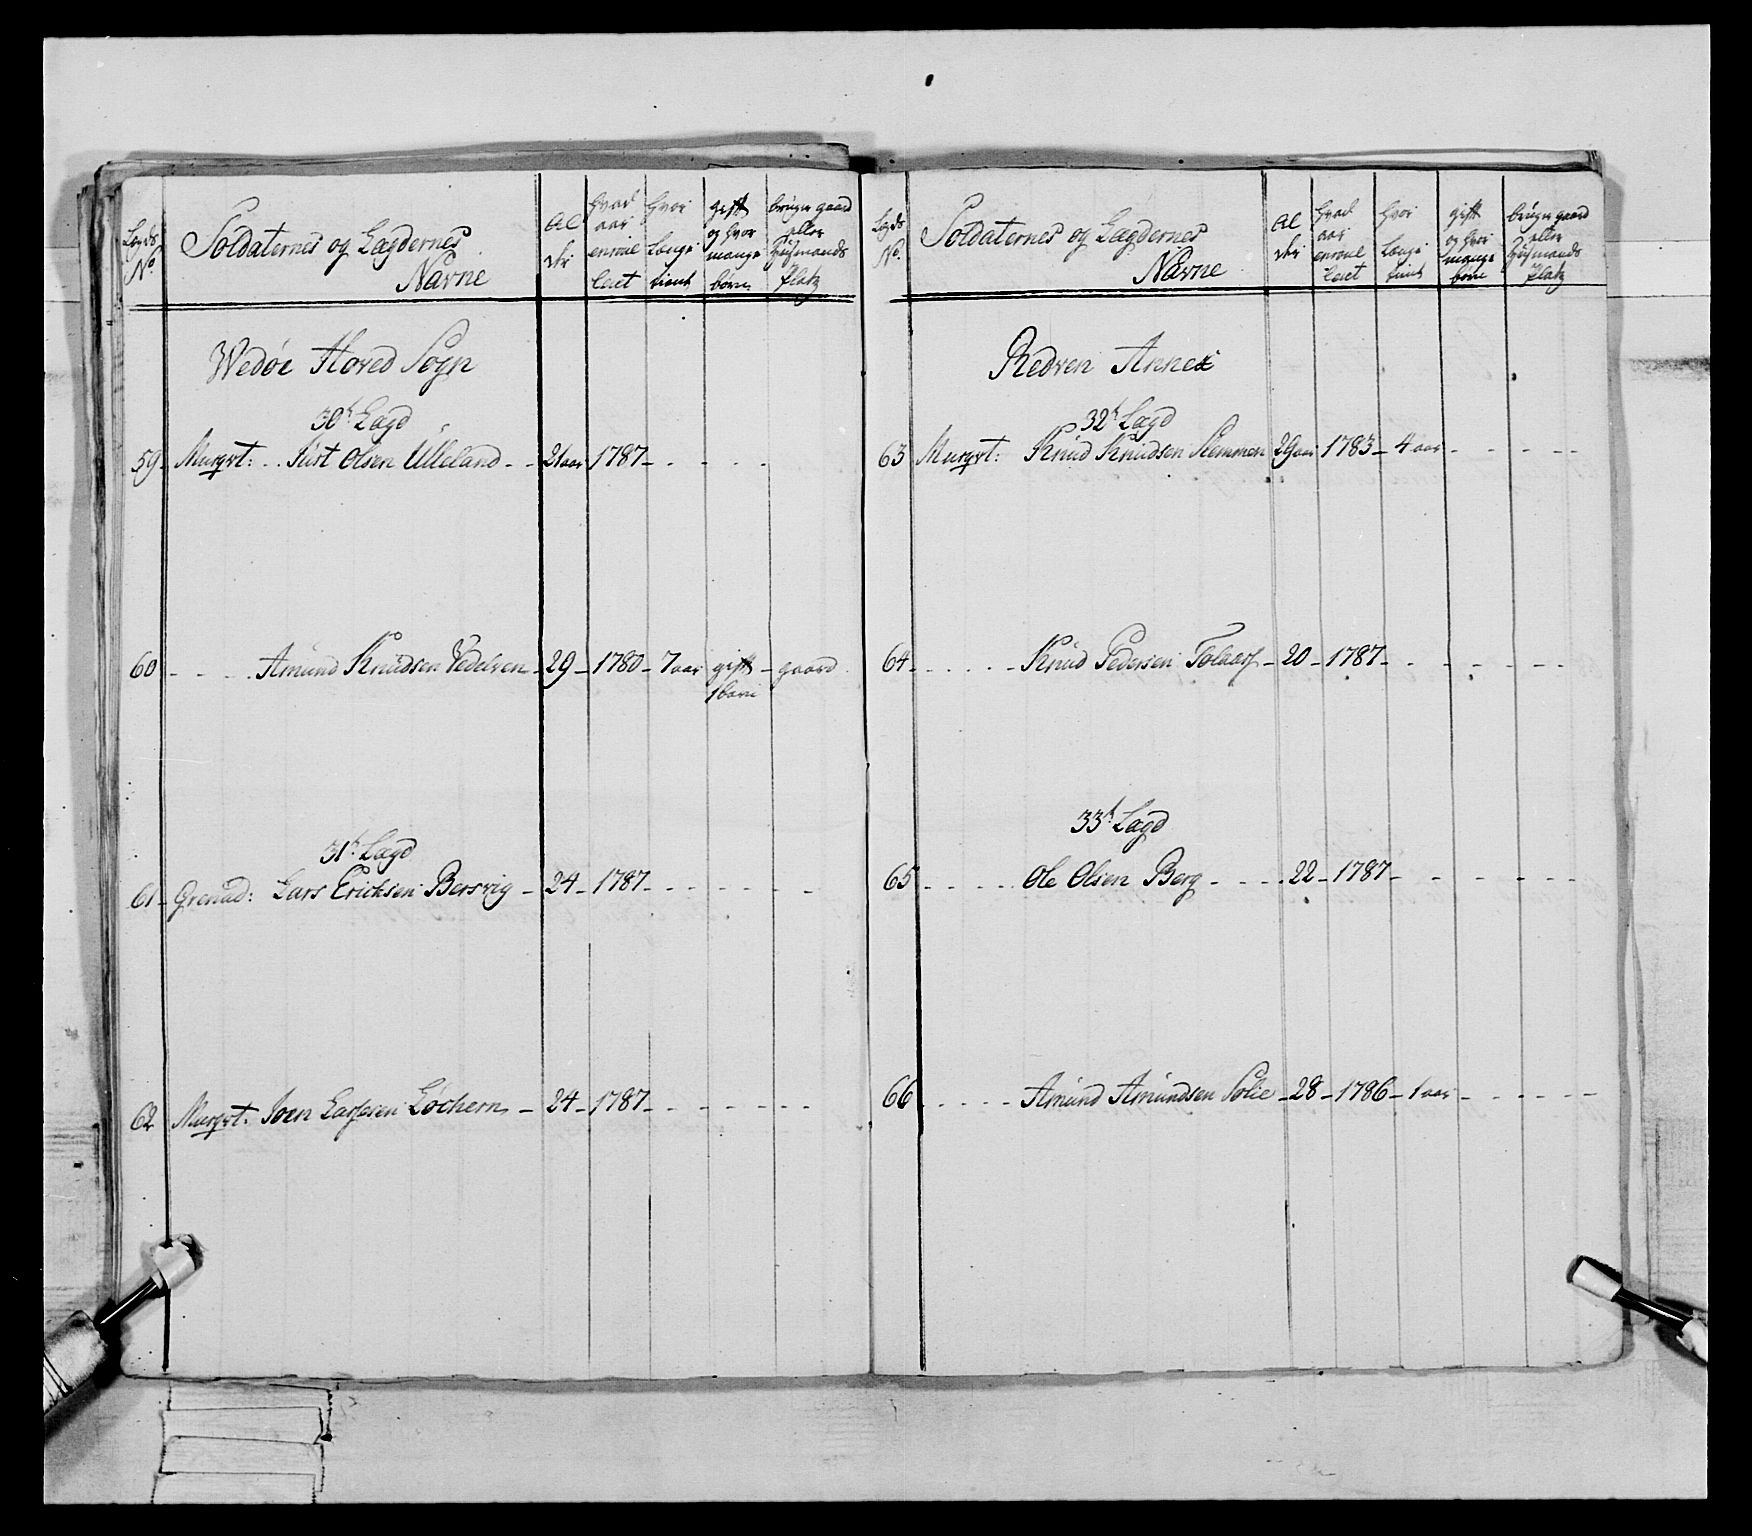 Legds No. | Soldaternes og Lægdernes Navne | Al der | hvad aar enroul leret | hvor længe tient | gift og hvor mange børn | bruger gaard eller Huusmands Platz
Wedøe Hoved Sogn
30t Lægd
59 Musqvt: Just Olsen Ulleland - 21 aar 1787 -
60 - Amund Knudsen Vedelven - 29 - 1780 - 7 aar gift - gaard
1 barn
31t Lægd
61 - Grenad: Lars Ericksen Bersvig - 24 - 1787 -
62 Musqvt. Joen Larsen Løchern - 24 - 1787 -
Legds No. | Soldaternes og Lægdernes Navne | Al der | hvad aar enroul leret | hvor længe tient | gift og hvor mange børn | bruger gaard eller Huusmands Platz
Redven Annex
32t Lægd
63 Musqvt: Knud Knudsen Stemmen 29 aar 1783 - 4 aar
64 - Knud Pedersen Tolaas - 20 - 1787 -
33t Lægd
65 - Ole Olsen Berg - 22 - 1787 -
66 - Amund Amundsen Solie - 28 - 1786 - 1 aar